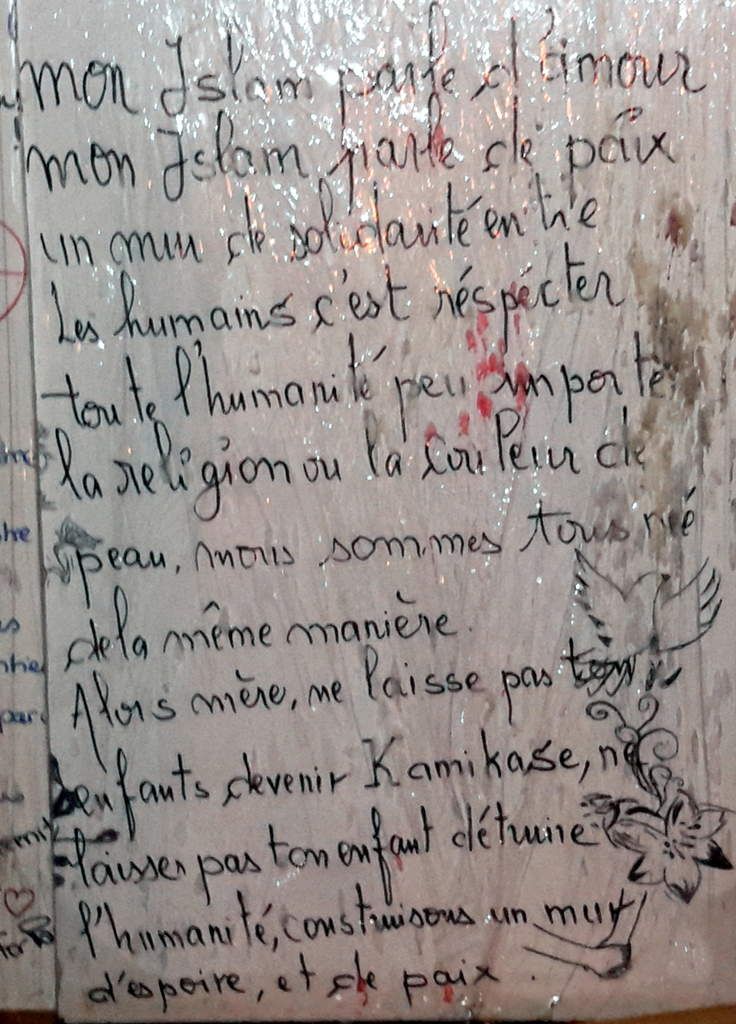 mon Islam parle d'amour
mon Islam parle de paix
un mur de solidarité entre
Les humains c'est réspécter
toute l'humanité peu importe
la religion ou la couleur de
peau, nous sommes tous né
de la même manière.
Alors mère, ne laisse pas
enfants devenir Kamikase, ne
laisser pas ton enfant détruire
l'humanité, construisons un mur
d'espoire, et de paix.